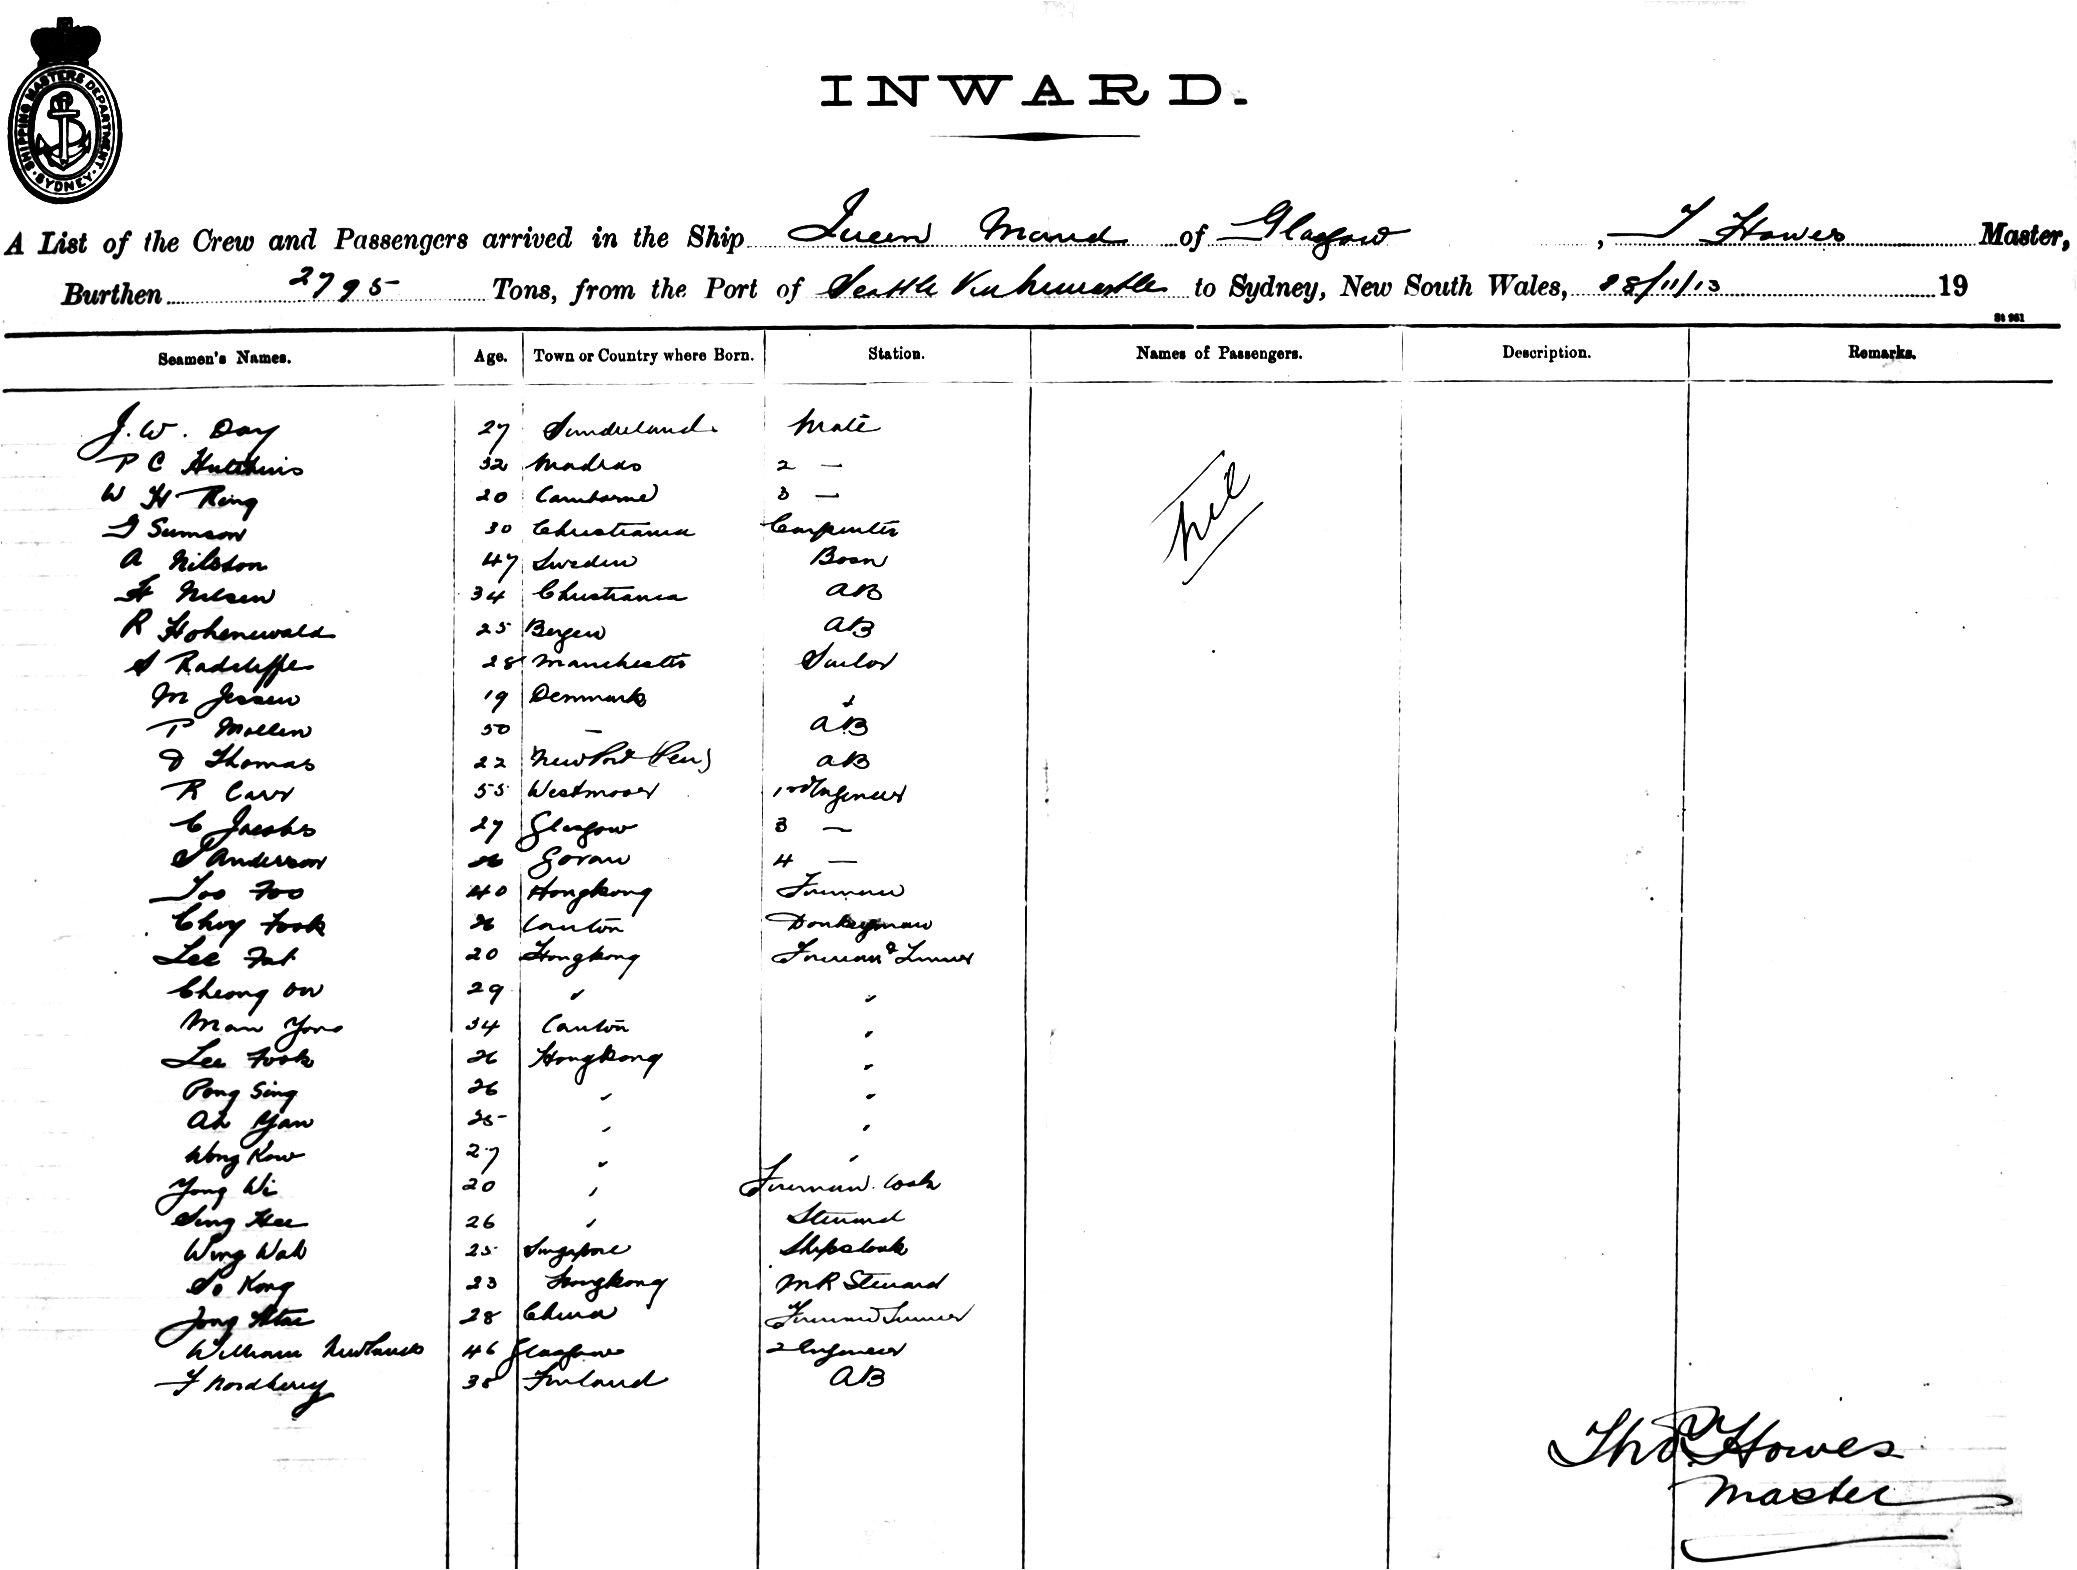 SHIPPING MASTERS DEPARTMENT. SYDNEY.
INWARD.
A List of the Crew and Passengers arrived in the Ship Queen Maud of Glasgow, T Howes Master,
Burthen 2795 Tons, from the Port of Seattle Via Newcastle to Sydney, New South Wales, 28/11/13 19
St 961
Seamen's Names. Age. Town or Country where Born. Station. Names of Passengers. Description. Remarks.
J. W. Day 27 Sunderland Mate
P C Hutchins 32 Madras 2 —
W H Ring 20 Camborne 3 —
G Sumson 30 Christiania Carpenter
A Nilsson 47 Sweden Bosn
H Nilsen 34 Christiania AB
R Hohenewald 25 Bergen AB
S Radcliffe 28 Manchester Sailor
M Jessen 19 Denmark
P Mollen 50 — AB
D Thomas 22 NewPort (Pen) AB
R Carr 55 Westmoor 1st Engineer
C Jacobs 27 Glasgow 3 —
S Anderson 26 Govan 4 —
Too Foo 40 Hongkong Fireman
Choy Fook 26 Canton Donkeyman
Lee Fat 20 Hongkong Fireman & Trimmer
Cheong On 29 " "
Man Yong 34 Canton "
Lee Fook 26 Hongkong "
Pong Sing 26 " "
Ah Yan 25 " "
Wong Kow 27 " "
Yong Wi 20 " Fireman. Cook
Sing Hee 26 " Steward
Wing Wah 25 Singapore Ships Cook
So Kong 23 Hongkong MR Steward
Jong 28 China Fireman Trimmer
William Newlands 46 Glasgow 2 Engineer
F Nordberg 38 Finland AB
Nil
Thos. Howes
Master